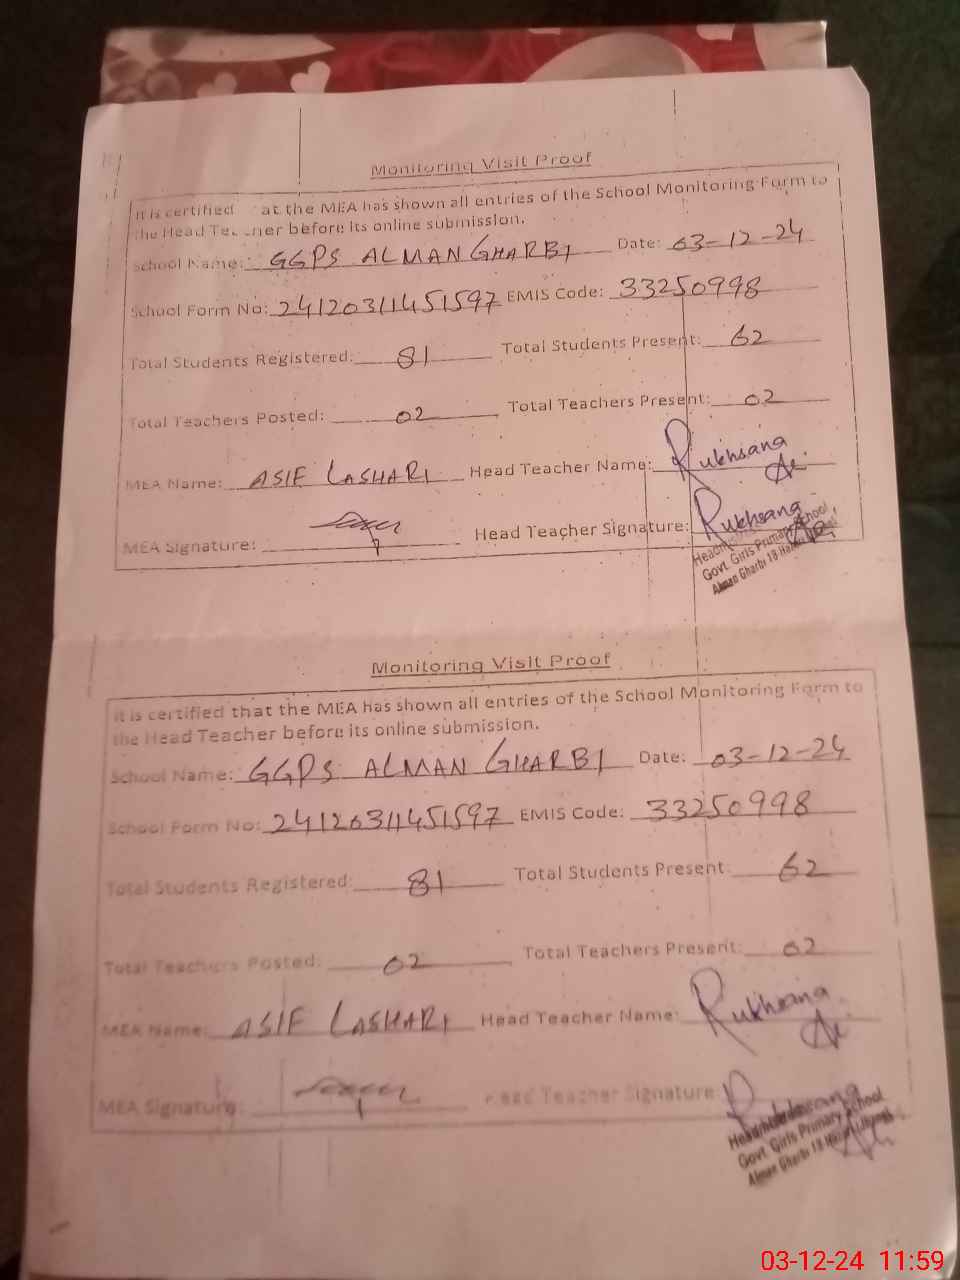 Monitoring Visit Proof
It is certified at the MEA has shown all entries of the School Monitoring Form to
the Head Teacher before its online submission.
School Name: GGPS ALMAN GHARBI Date: 03-12-24
School Form No: 24120311451597 EMIS Code: 33250998
Total Students Registered: 81 Total Students Present: 62
Total Teachers Posted: 02 Total Teachers Present: 02
MEA Name: ASIF LASHARI Head Teacher Name: Rukhsana
MEA Signature: Head Teacher Signature: Rukhsana
Govt. Girls Primary School
Alman Gharbi 18-
Monitoring Visit Proof
It is certified that the MEA has shown all entries of the School Monitoring Form to
the Head Teacher before its online submission.
School Name: GGPS ALMAN GHARBI Date: 03-12-24
School Form No: 24120311451597 EMIS Code: 33250998
Total Students Registered: 81 Total Students Present: 62
Total Teachers Posted: 02 Total Teachers Present: 02
MEA Name: ASIF LASHARI Head Teacher Name: Rukhsana
MEA Signature: Head Teacher Signature
Govt. Girls Primary School
Alman Gharbi 18-
03-12-24 11:59